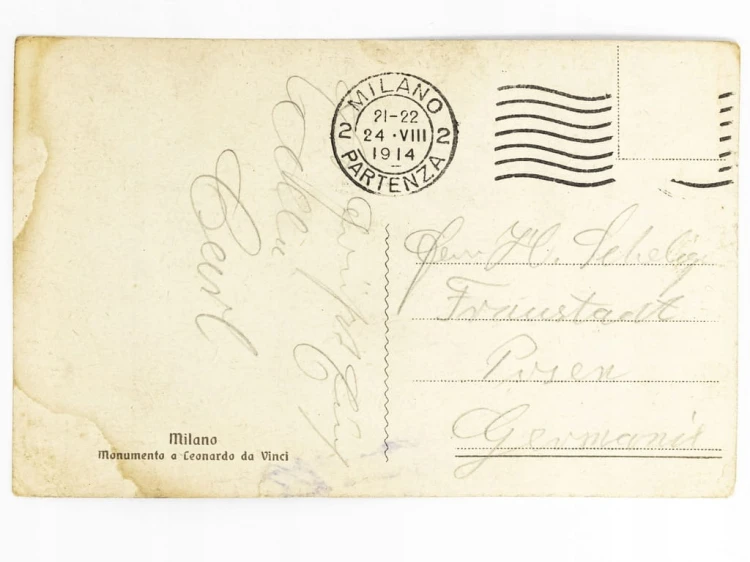 MILANO
21-22
2 24·VIII 2
1914
PARTENZA
H. Schelig
Fraustadt
Posen
Germania
Carl
Milano
Monumento a Leonardo da Vinci